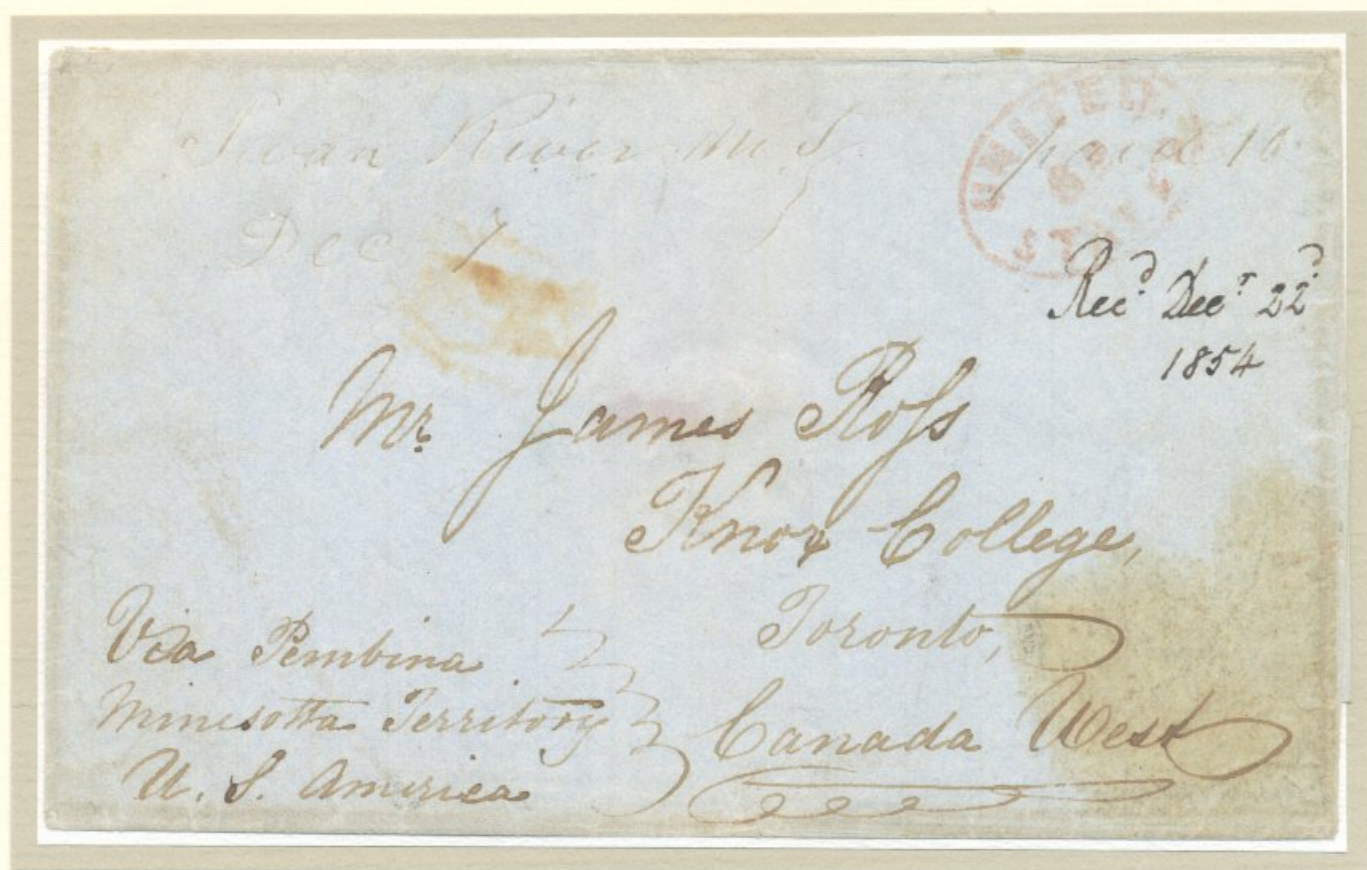 Swan River M.T. paid 10
Dec 7
UNITED
STATES
Rec.d Dec.r 22d
1854
Mr. James Roſs
Knox College,
Toronto,
Canada West
Via Pembina
Minesotta Territory
U. S. America